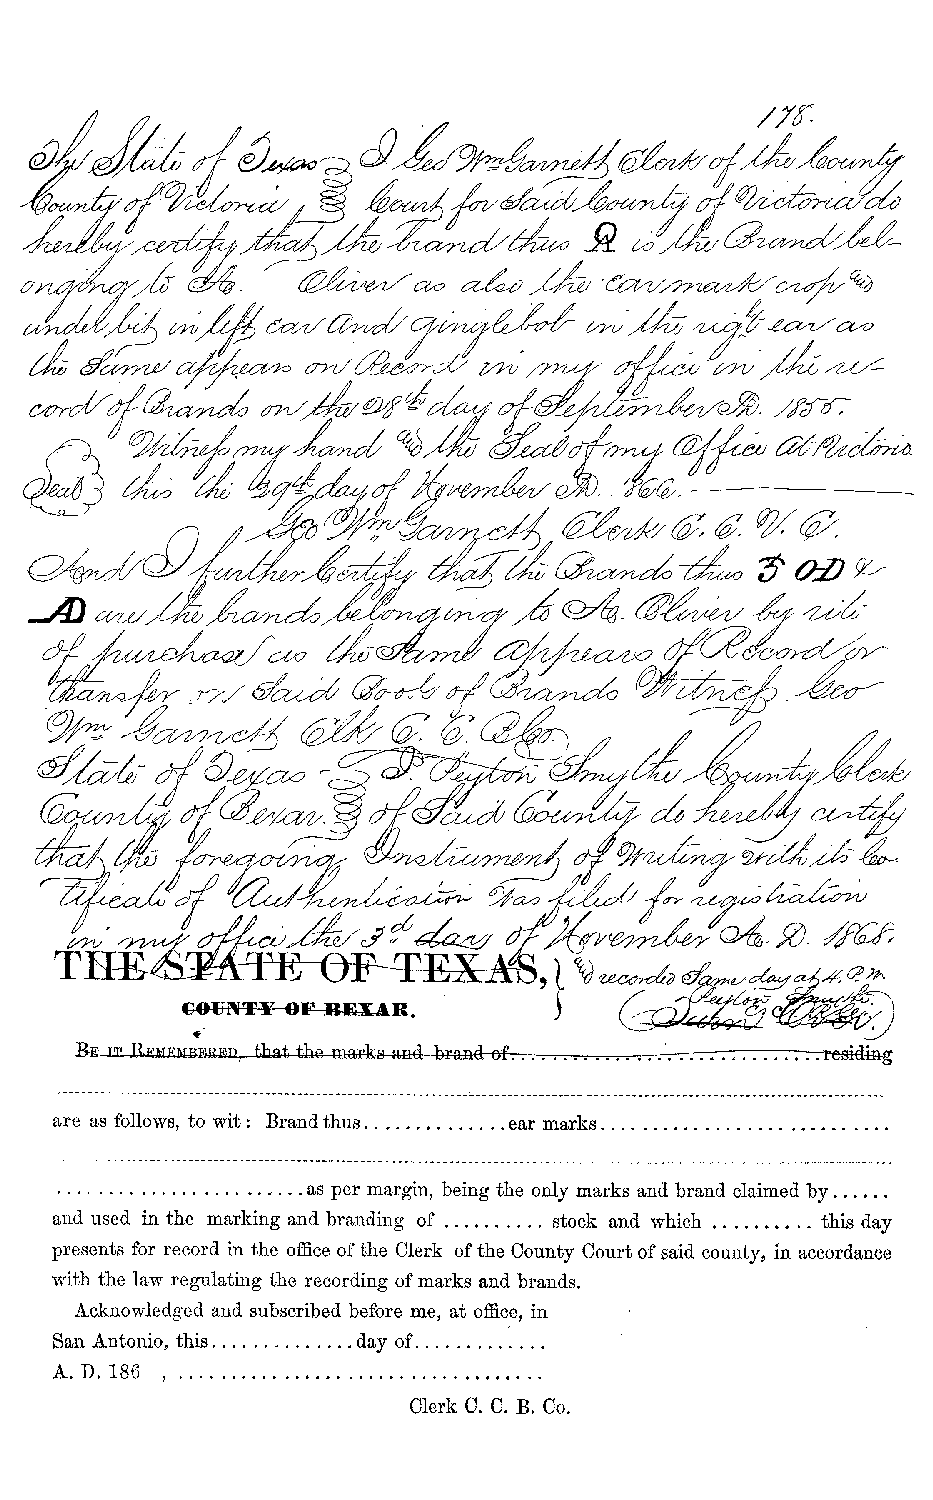 178.
The State of Texas I Geo Wm Garnett Clerk of the County
County of Victoria , Court for Said County of Victoria do
hereby certify that the brand thus is the Brand bel-
onging to A. Oliver as also the ear mark crop and
under bit in left ear and ginglebob in the right ear as
the Same appears on Record in my office in the re-
cord of Brands on the 28th day of September AD. 1855.
Witness my hand and the Seal of my Office at Victoria
Seal this the 29th day of November AD. 1866.
Geo Wm Garnett Clerk C. C. V. C.
And I further Certify that the Brands thus 5 OD &
AD are the brands belonging to A. Oliver by
of purchase as the Same appears of Record or
transfer on Said Book of Brands Witness Geo
Wm Garnett Clk C. C.
State of Texas - I. Peyton Smythe County Clerk
County of Bexar. of Said County do hereby certify
that the foregoing Instrument of Writing with its Ce-
tificate of Authentication was filed for registration
in my office the 3rd day of November A. D. 1868.
THE STATE OF TEXAS, and recorded Same day at 4. P.M.
Peyton Smythe.
COUNTY OF BEXAR.
BE IT REMEMBERED, that the marks and brand of residing
are as follows, to wit: Brand thus ear marks
as per margin, being the only marks and brand claimed by
and used in the marking and branding of stock and which this day
presents for record in the office of the Clerk of the County Court of said county, in accordance
with the law regulating the recording of marks and brands.
Acknowledged and subscribed before me, at office, in
San Antonio, this day of
A. D. 186 ,
Clerk C. C. B. Co.